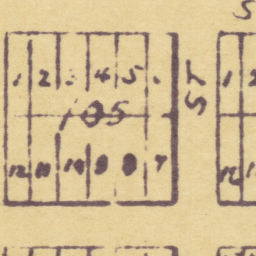 S
1 2 3 4 5
105
12 11 10 9 8 7
ST
1 2
12